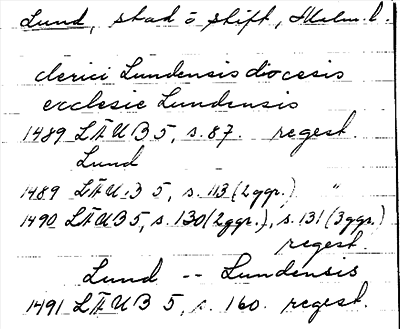 Lund, stad o stift, Malm. l.
clerici Lundensis diocesis
ecclesie Lundensis
1489 LÄUB 5, s. 87. regest.
Lund
1489 LÄUB 5, s. 113 (2 ggr.) "
1490 LÄUB 5, s. 130 (2 ggr.), s. 131 (3 ggr.)
regest.
Lund -- Lundensis
1491 LÄUB 5, s. 160. regest.